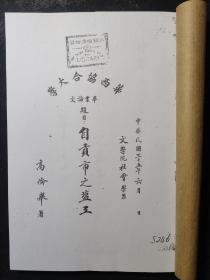 華西協合大學
畢業論文
中華民國卅五年六月 日
文學院社會學系
題目 自貢市之塩工
高
著
5246